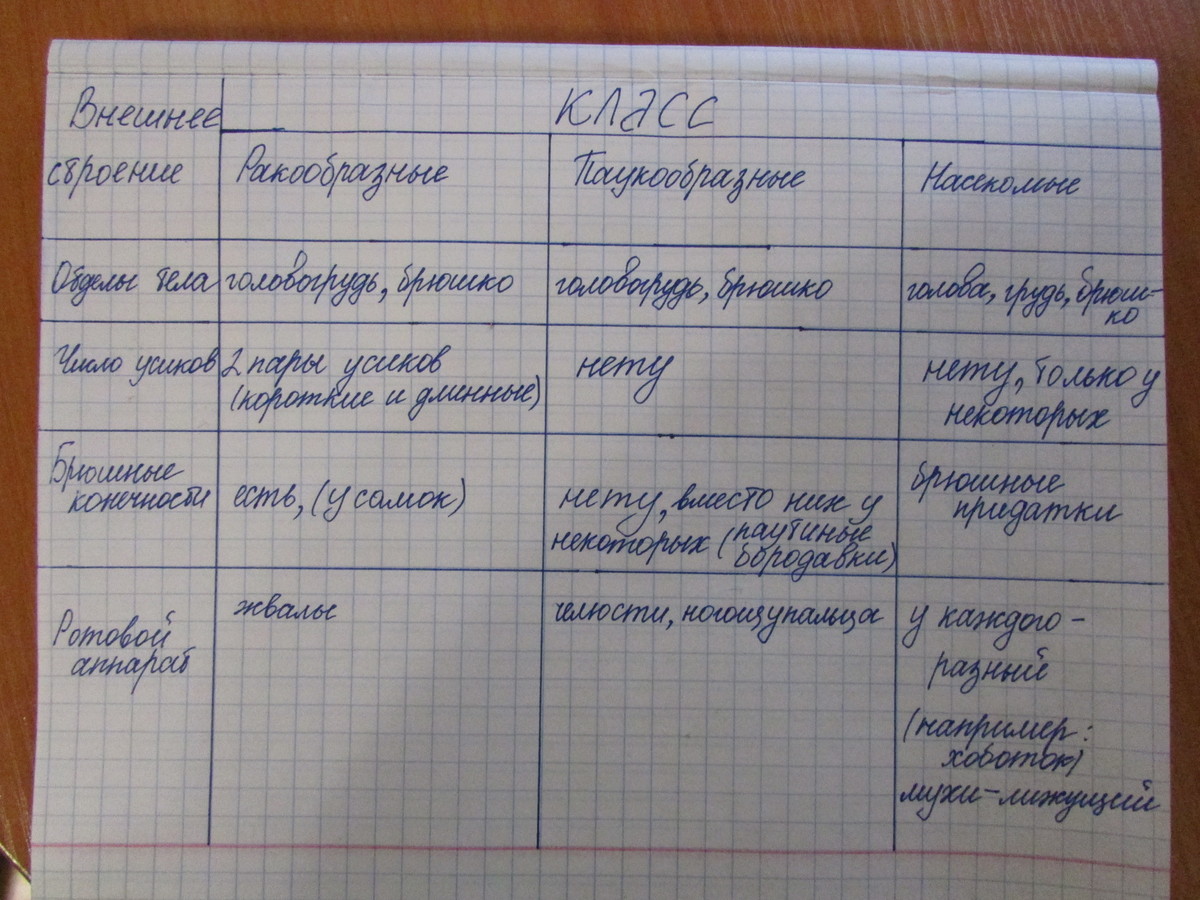 Внешнее
КЛАСС
строение
Ракообразные
Паукообразные
Насекомые
Отделы тела
головогрудь, брюшко
головогрудь, брюшко
голова, грудь, брюш-
ко
Число усиков
2 пары усиков
(короткие и длинные)
нету
нету, только у
некоторых
Брюшные
конечности
есть, (у самок)
нету, вместо них у
некоторых (паутиные
ббродавки)
брюшные
придатки
Ротовой
аппарат
жвалы
челюсти, ногощупальца
у каждого -
разный
(например:
хоботок)
мухи-лижущий